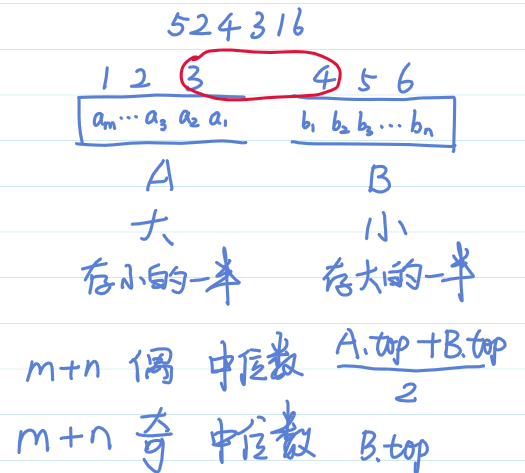 524316
1 2 3 4 5 6
aₘ⋯a₃ a₂ a₁ b₁ b₂ b₃⋯bₙ
A B
大 小
存小的一半 存大的一半
m+n 偶 中位数 A.top+B.top/2
m+n 奇 中位数 B.top